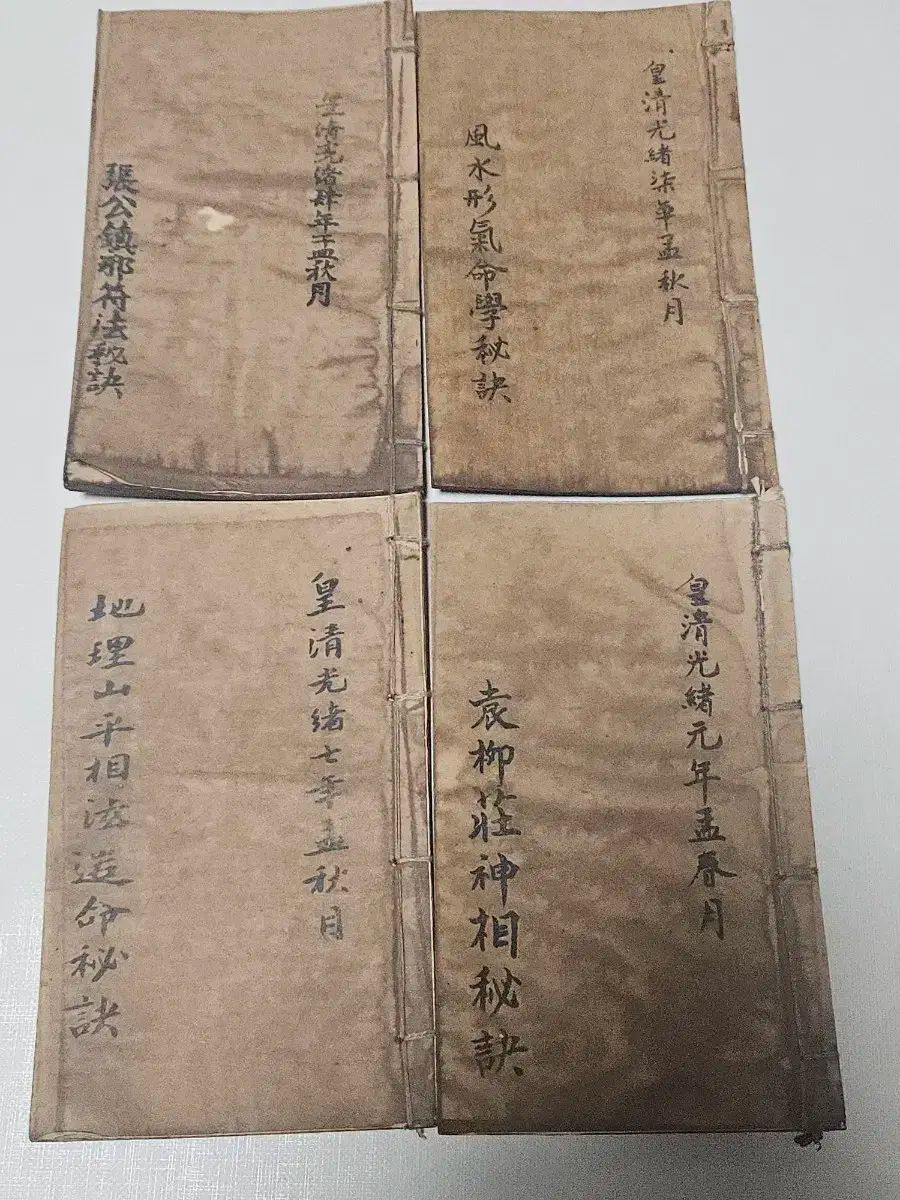 皇清光緒柒年孟秋月
風水形氣命學秘訣
皇清光緒肆年孟秋月
張公鎮邪符法秘訣
皇清光緒元年孟春月
袁柳莊神相秘訣
皇清光緒七年孟秋月
地理山平相法造命秘訣